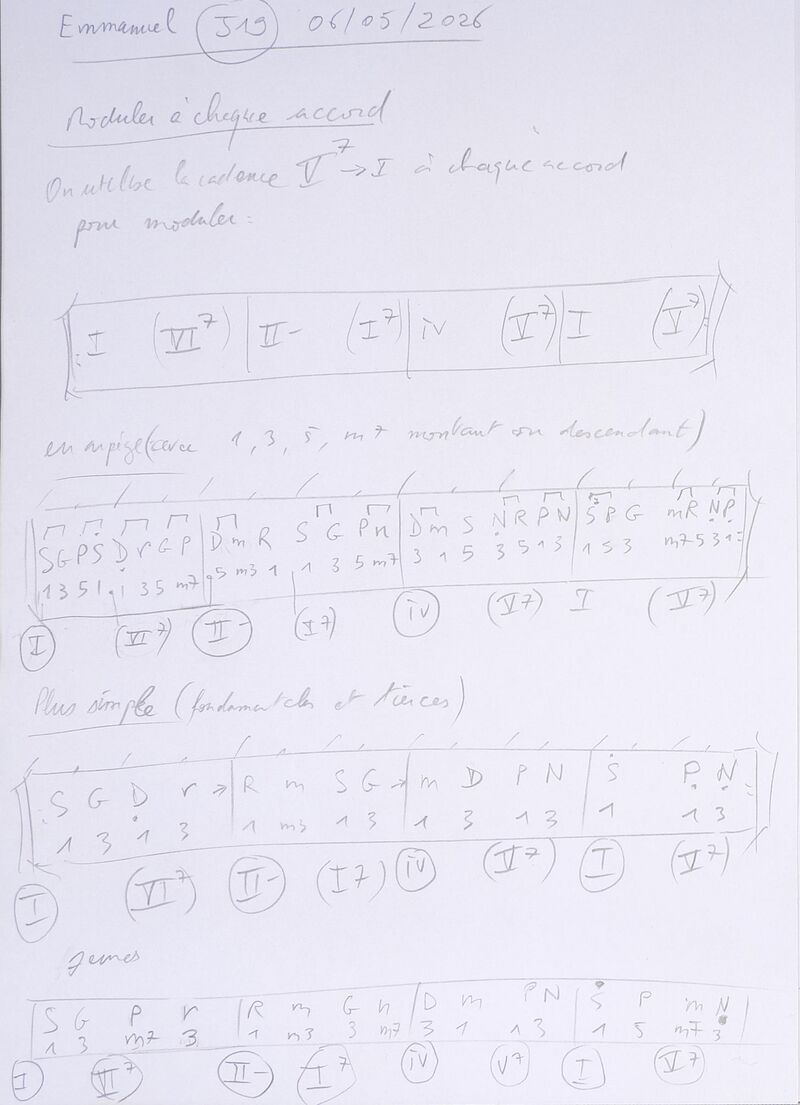 Emmanuel J19 06/05/2026
Moduler à chaque accord
On utilise la cadence V7 → I à chaque accord
pour moduler :
I (VI7) | II- (I7) | iv (V7) | I (V7)
en arpège (avec 1, 3, 5, m7 montant ou descendant)
S G P S D r G P | D m R S G P n | D m S N R P N | S P G m R N P
1 3 5 1 1 3 5 m7 | 5 m3 1 1 3 5 m7 | 3 1 5 3 5 1 3 | 1 5 3 m7 5 3 1
I (VI7) II- (I7) iv (V7) I (V7)
Plus simple (fondamentales et tierces)
: S G D r → | R m S G → | m D P N | S P N :
1 3 1 3 | 1 m3 1 3 | 1 3 1 3 | 1 1 3
I (VI7) II- (I7) iv (V7) I (V7)
7emes
S G P r | R m G n | D m P N | S P m N
1 3 m7 3 | 1 m3 3 m7 | 3 1 1 3 | 1 5 m7 3
I VI7 II- I7 iv V7 I V7